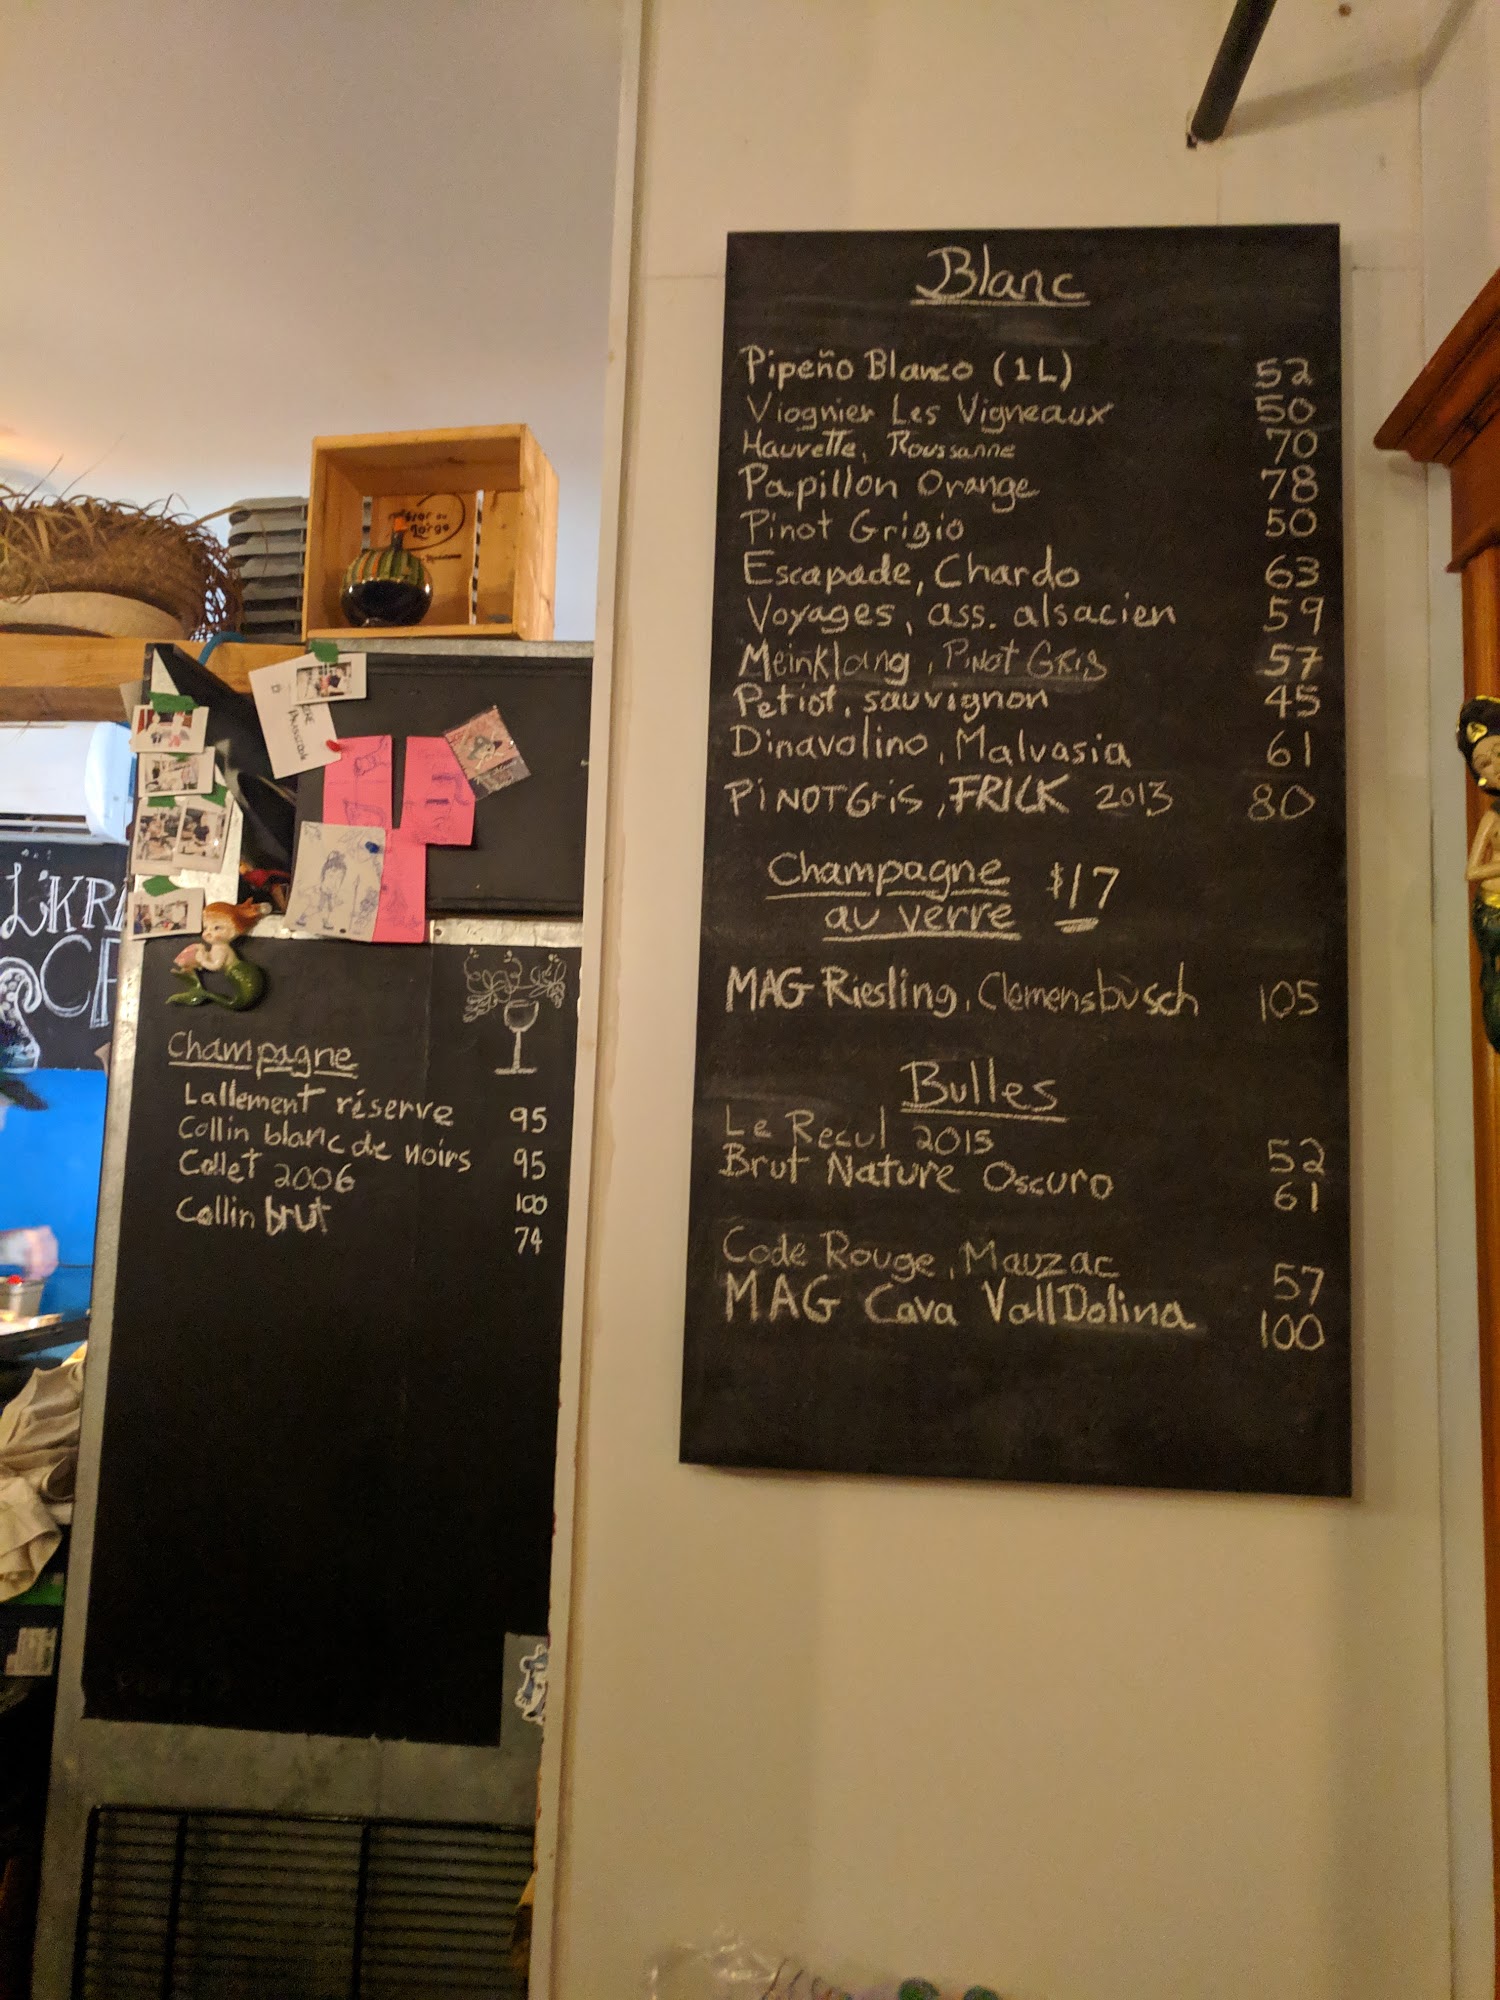 Blanc
Pipeño Blanco (1L) 52
Viognier Les Vigneaux 50
Hauvette, Roussanne 70
Papillon Orange 78
Pinot Grigio 50
Escapade, Chardo 63
Voyages, ass. alsacien 59
Meinklang, PiNoT GRiS 57
Petiot, sauvignon 45
Dinavolino, Malvasia 61
PiNOT Gris, FRICK 2013 80
Champagne $17
au verre
MAG Riesling, Clemensbusch 105
Bulles
Le Recul 2015 52
Brut Nature Oscuro 61
Code Rouge, Mauzac 57
MAG Cava VallDolina 100
Champagne
Lallement réserve 95
Collin blanc de noirs 95
Collet 2006 100
Collin brut 74
L'KR